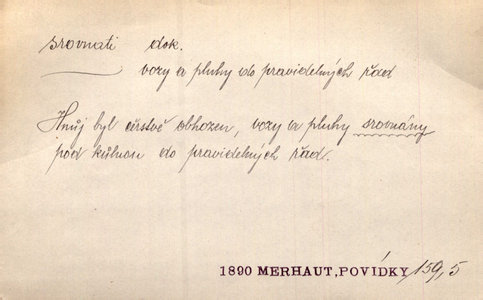 srovnati dok.
vozy a pluhy do pravidelných řad
Hnůj byl čerstvě obhozen, vozy a pluhy srovnány
pod kůlnou do pravidelných řad.
1890 MERHAUT, POVÍDKY 159,5